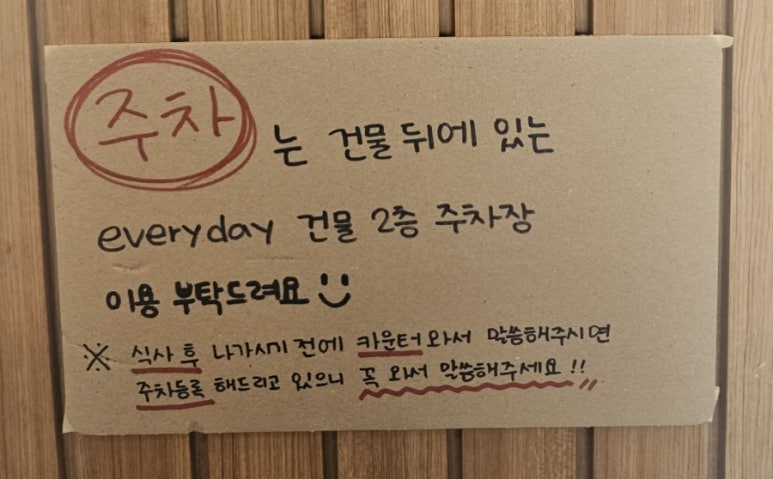 주차는 건물 뒤에 있는
everyday 건물 2층 주차장
이용 부탁드려요
※ 식사 후 나가시기 전에 카운터 와서 말씀해주시면
주차등록 해드리고 있으니 꼭 와서 말씀해주세요!!